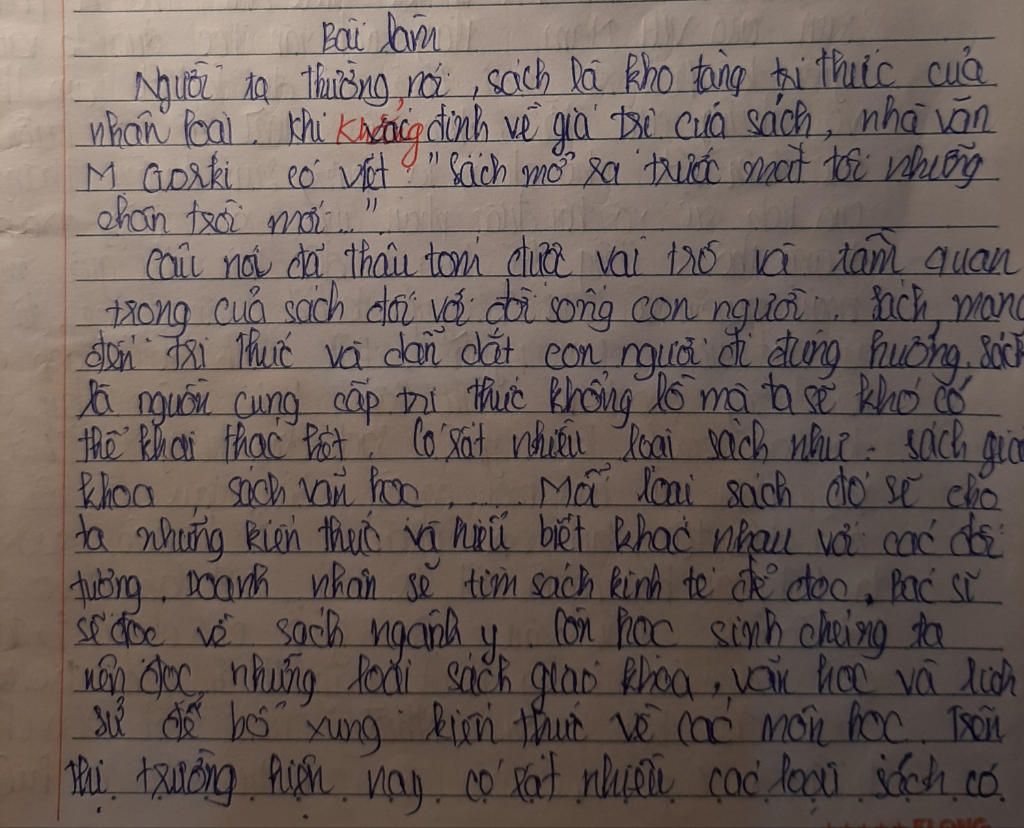 Bài làm
Người ta thường nói, sách là kho tàng tri thức của
nhân loại. Khi khẳng định về giá trị của sách, nhà văn
M. Gorki có viết "Sách mở ra trước mắt tôi những
chân trời mới..."
Câu nói đã thâu tóm được vai trò và tầm quan
trọng của sách đối với đời sống con người. Sách mang
đến tri thức và dẫn dắt con người đi đúng hướng. Sách
là nguồn cung cấp tri thức khổng lồ mà ta sẽ khó có
thể khai thác hết. Có rất nhiều loại sách như: sách giáo
khoa, sách văn học,..... Mỗi loại sách đó sẽ cho
ta những kiến thức và hiểu biết khác nhau với các đối
tượng. Doanh nhân sẽ tìm sách kinh tế để đọc, bác sĩ
sẽ đọc về sách ngành y. Còn học sinh chúng ta
nên đọc những loại sách giáo khoa, văn học và lịch
sử để bổ xung kiến thức về các môn học. Trên
thị trường hiện nay có rất nhiều các loại sách có